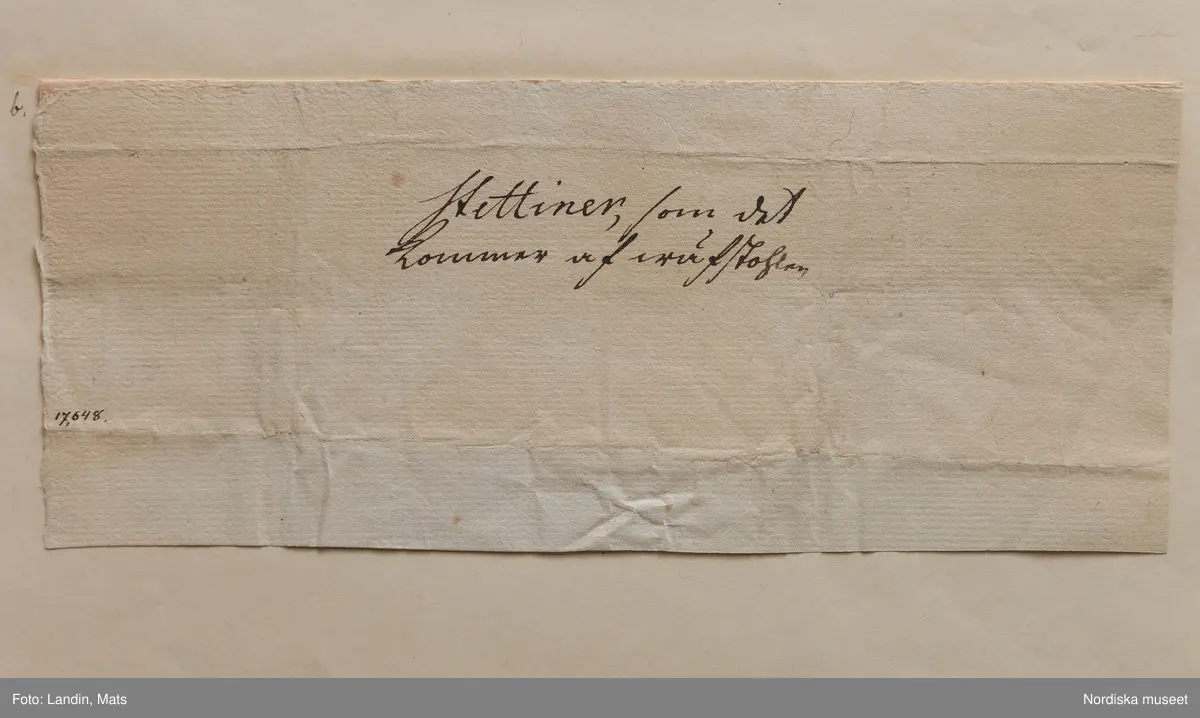 b.
Stettiner, som det
kommer af wäfstohlen
17,648.
Foto: Landin, Mats
Nordiska museet